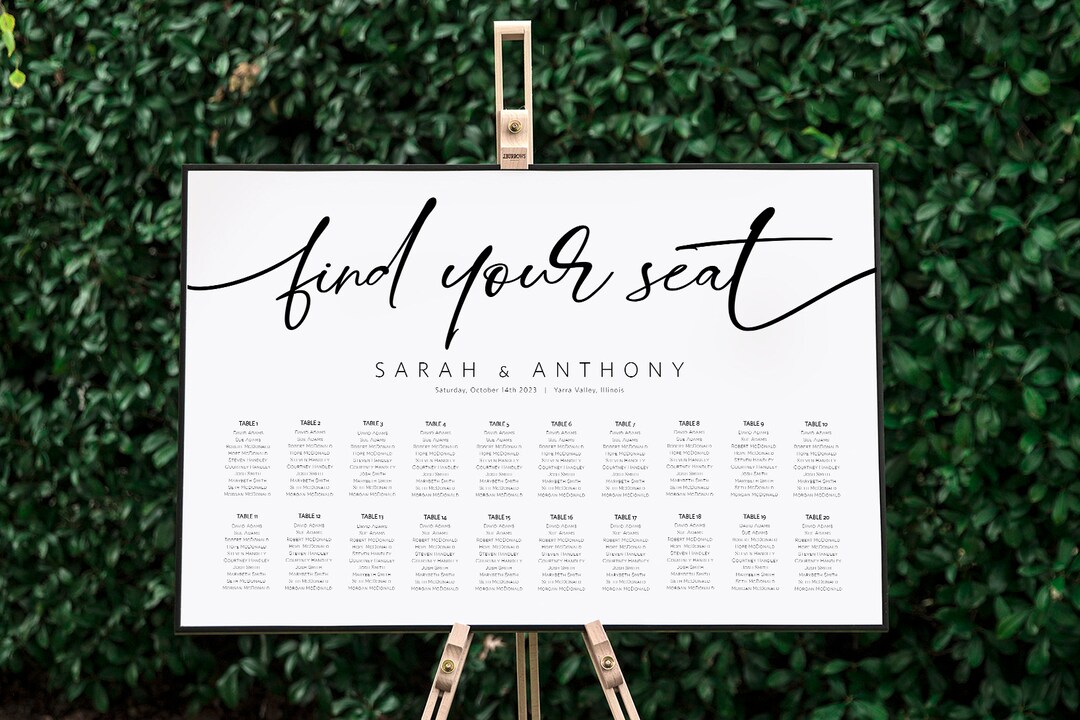 find your seat
SARAH & ANTHONY
Saturday, October 14th 2023 | Yarra Valley, Illinois
TABLE 1 TABLE 2 TABLE 3 TABLE 4 TABLE 5 TABLE 6 TABLE 7 TABLE 8 TABLE 9 TABLE 10
David Adams David Adams David Adams David Adams David Adams David Adams David Adams David Adams David Adams David Adams
Sue Adams Sue Adams Sue Adams Sue Adams Sue Adams Sue Adams Sue Adams Sue Adams Sue Adams Sue Adams
Robert McDonald Robert McDonald Robert McDonald Robert McDonald Robert McDonald Robert McDonald Robert McDonald Robert McDonald Robert McDonald Robert McDonald
Hope McDonald Hope McDonald Hope McDonald Hope McDonald Hope McDonald Hope McDonald Hope McDonald Hope McDonald Hope McDonald Hope McDonald
Steven Handley Steven Handley Steven Handley Steven Handley Steven Handley Steven Handley Steven Handley Steven Handley Steven Handley Steven Handley
Courtney Handley Courtney Handley Courtney Handley Courtney Handley Courtney Handley Courtney Handley Courtney Handley Courtney Handley Courtney Handley Courtney Handley
Josh Smith Josh Smith Josh Smith Josh Smith Josh Smith Josh Smith Josh Smith Josh Smith Josh Smith Josh Smith
Marybeth Smith Marybeth Smith Marybeth Smith Marybeth Smith Marybeth Smith Marybeth Smith Marybeth Smith Marybeth Smith Marybeth Smith Marybeth Smith
Seth McDonald Seth McDonald Seth McDonald Seth McDonald Seth McDonald Seth McDonald Seth McDonald Seth McDonald Seth McDonald Seth McDonald
Morgan McDonald Morgan McDonald Morgan McDonald Morgan McDonald Morgan McDonald Morgan McDonald Morgan McDonald Morgan McDonald Morgan McDonald Morgan McDonald
TABLE 11 TABLE 12 TABLE 13 TABLE 14 TABLE 15 TABLE 16 TABLE 17 TABLE 18 TABLE 19 TABLE 20
David Adams David Adams David Adams David Adams David Adams David Adams David Adams David Adams David Adams David Adams
Sue Adams Sue Adams Sue Adams Sue Adams Sue Adams Sue Adams Sue Adams Sue Adams Sue Adams Sue Adams
Robert McDonald Robert McDonald Robert McDonald Robert McDonald Robert McDonald Robert McDonald Robert McDonald Robert McDonald Robert McDonald Robert McDonald
Hope McDonald Hope McDonald Hope McDonald Hope McDonald Hope McDonald Hope McDonald Hope McDonald Hope McDonald Hope McDonald Hope McDonald
Steven Handley Steven Handley Steven Handley Steven Handley Steven Handley Steven Handley Steven Handley Steven Handley Steven Handley Steven Handley
Courtney Handley Courtney Handley Courtney Handley Courtney Handley Courtney Handley Courtney Handley Courtney Handley Courtney Handley Courtney Handley Courtney Handley
Josh Smith Josh Smith Josh Smith Josh Smith Josh Smith Josh Smith Josh Smith Josh Smith Josh Smith Josh Smith
Marybeth Smith Marybeth Smith Marybeth Smith Marybeth Smith Marybeth Smith Marybeth Smith Marybeth Smith Marybeth Smith Marybeth Smith Marybeth Smith
Seth McDonald Seth McDonald Seth McDonald Seth McDonald Seth McDonald Seth McDonald Seth McDonald Seth McDonald Seth McDonald Seth McDonald
Morgan McDonald Morgan McDonald Morgan McDonald Morgan McDonald Morgan McDonald Morgan McDonald Morgan McDonald Morgan McDonald Morgan McDonald Morgan McDonald